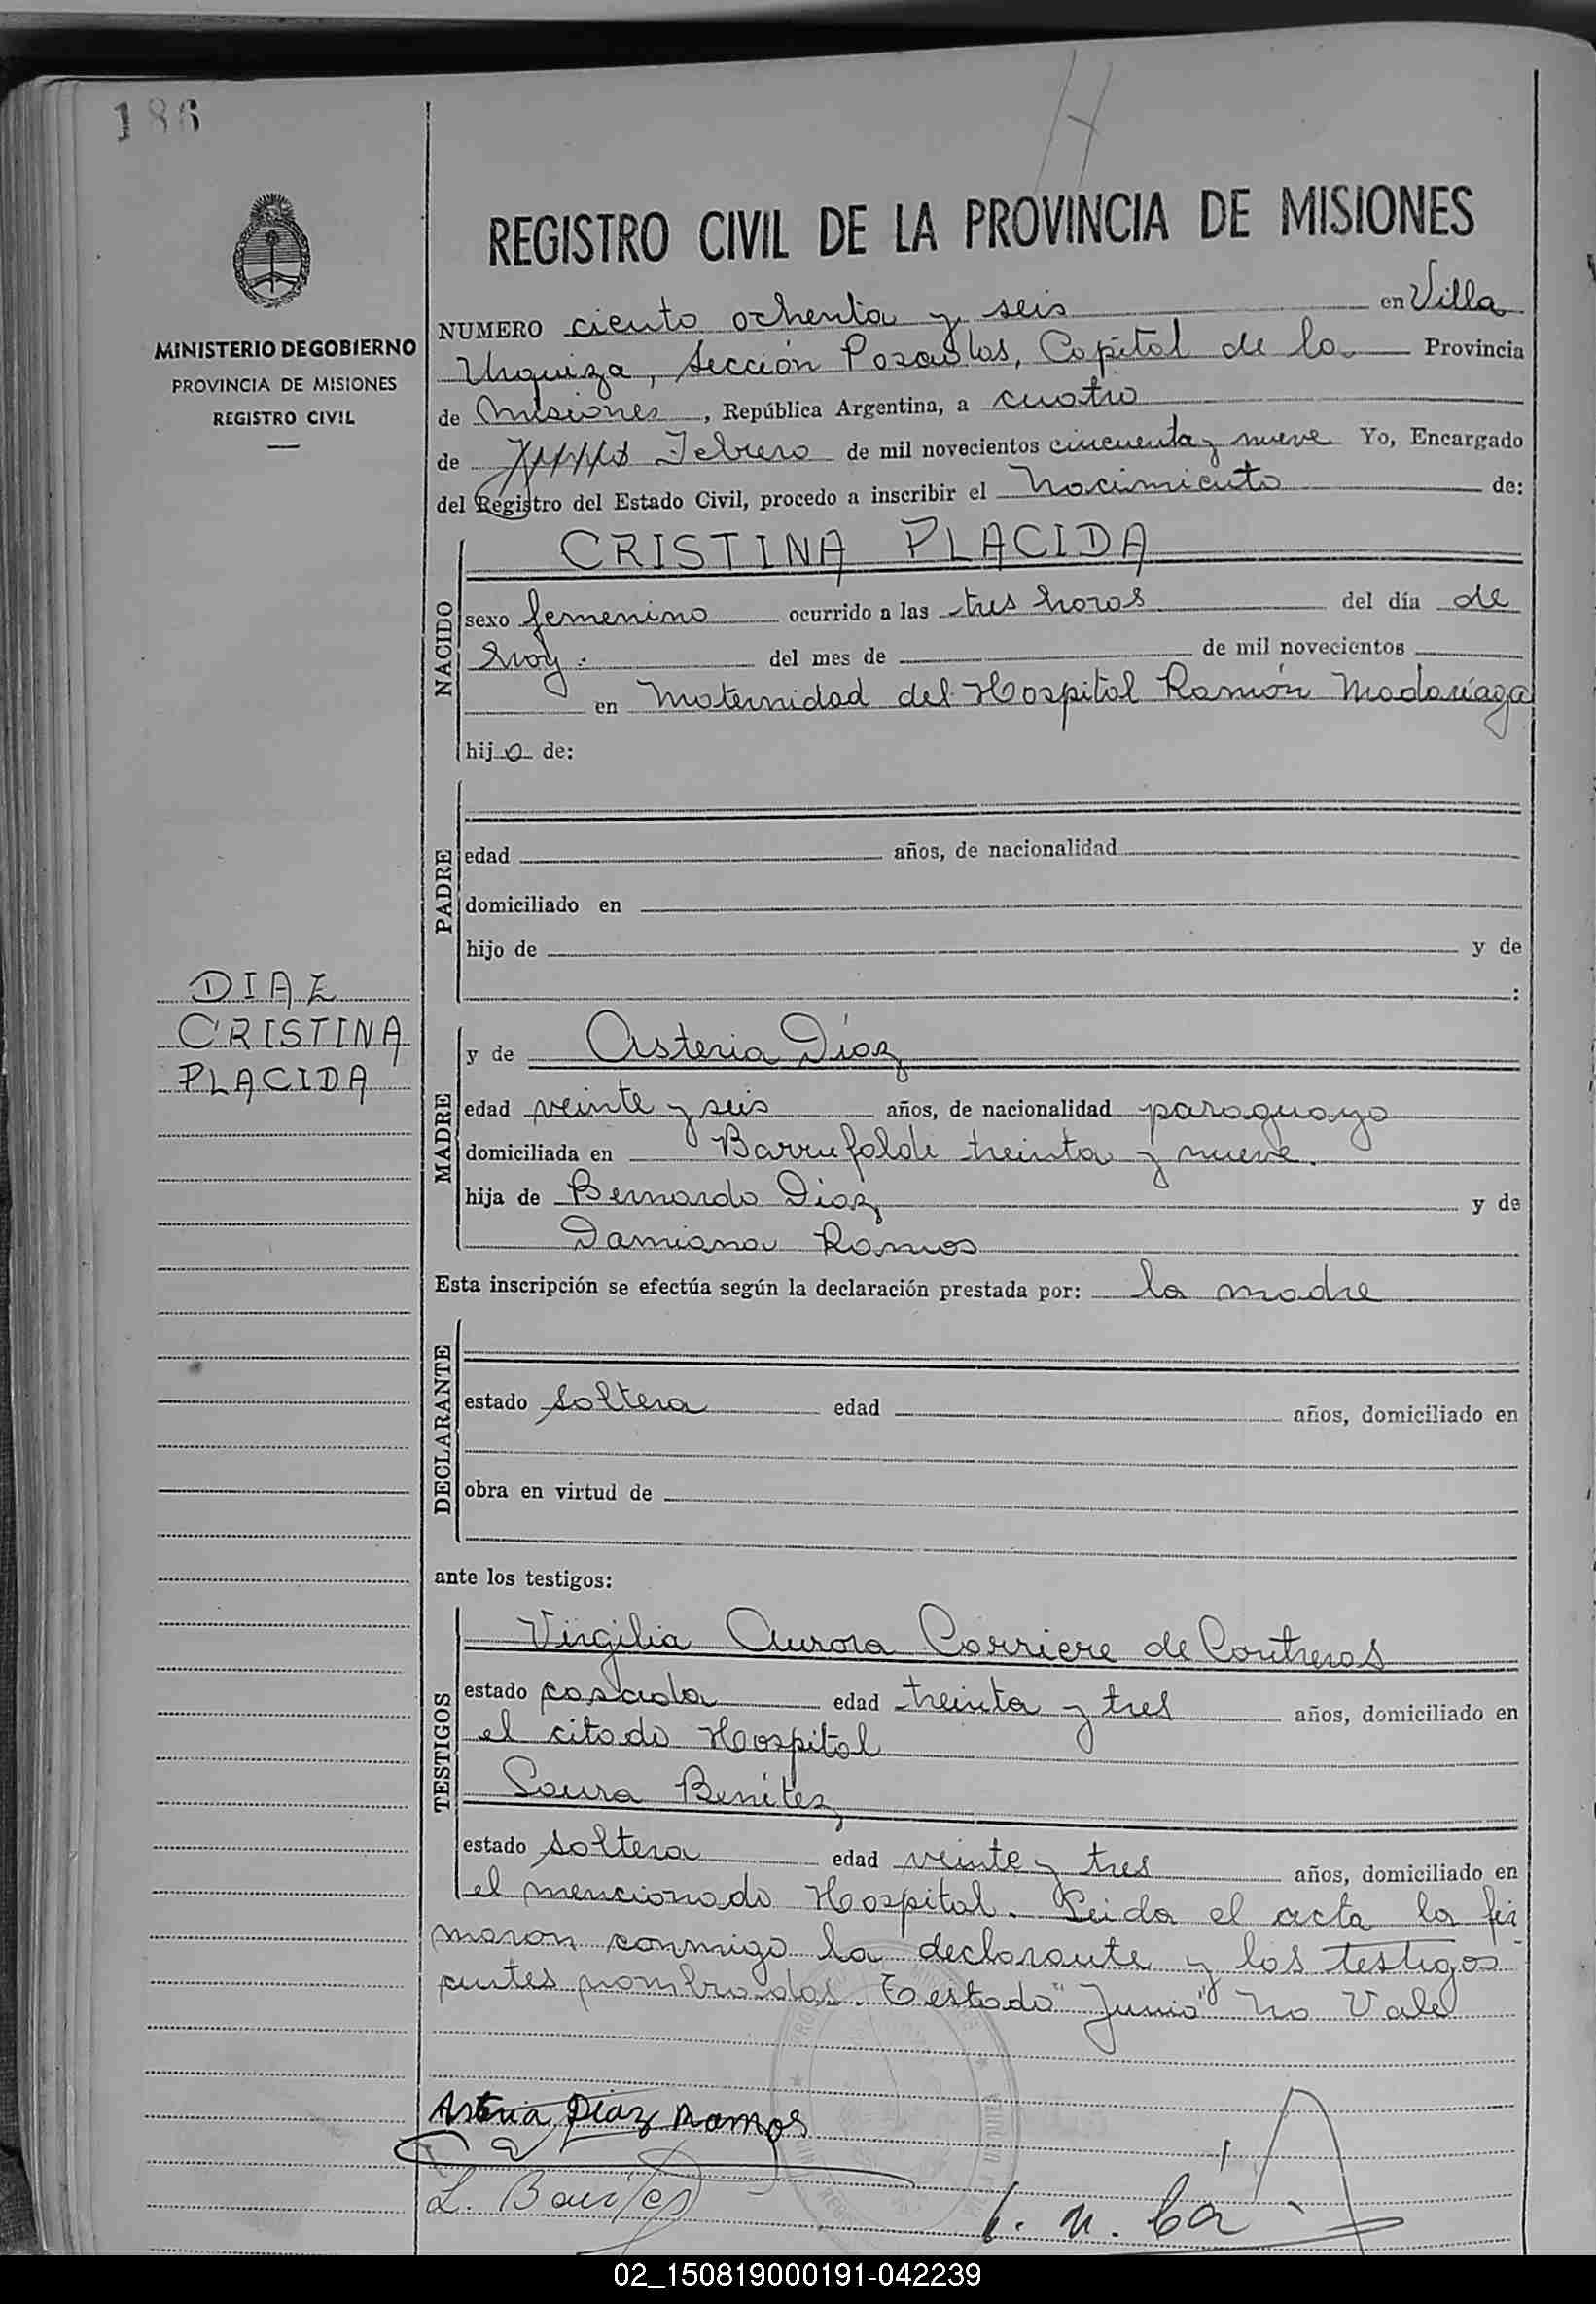 186
REGISTRO CIVIL DE LA PROVINCIA DE MISIONES
MINISTERIO DE GOBIERNO
PROVINCIA DE MISIONES
REGISTRO CIVIL
NUMERO ciento ochenta y seis en Villa
Urquiza, Sección Posadas, Capital de la Provincia
de Misiones, República Argentina, a cuatro
de Junio Febrero de mil novecientos cincuenta y nueve Yo, Encargado
del Registro del Estado Civil, procedo a inscribir el nacimiento de:
NACIDO
CRISTINA PLACIDA
sexo femenino ocurrido a las tres horas del día de
hoy. del mes de de mil novecientos
en Maternidad del Hospital Ramón Madariaga
hija de:
PADRE
edad años, de nacionalidad
domiciliado en
hijo de y de
:
DIAZ
CRISTINA
PLACIDA
MADRE
y de Asteria Díaz
edad veinte y seis años, de nacionalidad paraguaya
domiciliada en Barrufaldi treinta y nueve.
hija de Bernardo Díaz y de
Damiana Ramos
Esta inscripción se efectúa según la declaración prestada por: la madre
DECLARANTE
estado soltera edad años, domiciliado en
obra en virtud de
ante los testigos:
TESTIGOS
Virgilia Aurora Carriere de Contreras
estado casada edad treinta y tres años, domiciliado en
el citado Hospital
Laura Benítez
estado soltera edad veinte y tres años, domiciliado en
el mencionado Hospital. Leida el acta la fir
maron conmigo la declarante y los testigos
antes nombrados. Testado "Junio" No Vale
Asteria Diaz Ramos
L. Benitez
02_150819000191-042239